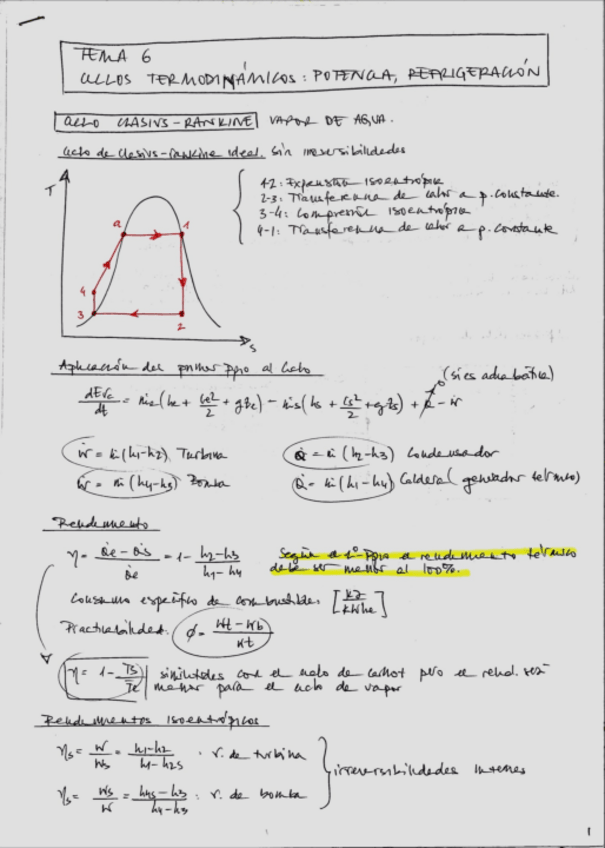 TEMA 6
CICLOS TERMODINÁMICOS: POTENCIA, REFRIGERACIÓN
CICLO CLASIUS-RANKINE VAPOR DE AGUA.
Ciclo de Clasius-rankine ideal. Sin irreversibilidades
T
a
1
4
3
2
s
1-2: Expansión isoentrópica
2-3: Transferencia de calor a p. constante.
3-4: Compresión isoentrópica
4-1: Transferencia de calor a p. constante
Aplicación del primer ppio al ciclo
(si es adiabática)
dEvc/dt = ṁe(he + ce²/2 + gze) - ṁs(hs + cs²/2 + gzs) + Q̇ - Ẇ
0
Ẇ = ṁ(h1-h2) Turbina
Q̇ = ṁ(h2-h3) Condensador
Ẇ = ṁ(h4-h3) Bomba
Q̇ = ṁ(h1-h4) Caldera (generador térmico)
Rendimiento
η = Q̇e - Q̇s/Q̇e = 1 - h2-h3/h1-h4
Según el 1º ppio el rendimiento térmico
debe ser menor al 100%.
Consumo específico de combustible: [kJ/kWhe]
Practicabilidad: φ = Wt - Wb/Wt
η = 1 - Ts/Te similitudes con el ciclo de carnot pero el rend. será
menor para el ciclo de vapor
Rendimientos isoentrópicos
ηs = W/Ws = h1-h2/h1-h2s : r. de turbina
irreversibilidades internas
ηs = Ws/W = h4s-h3/h4-h3 : r. de bomba
1